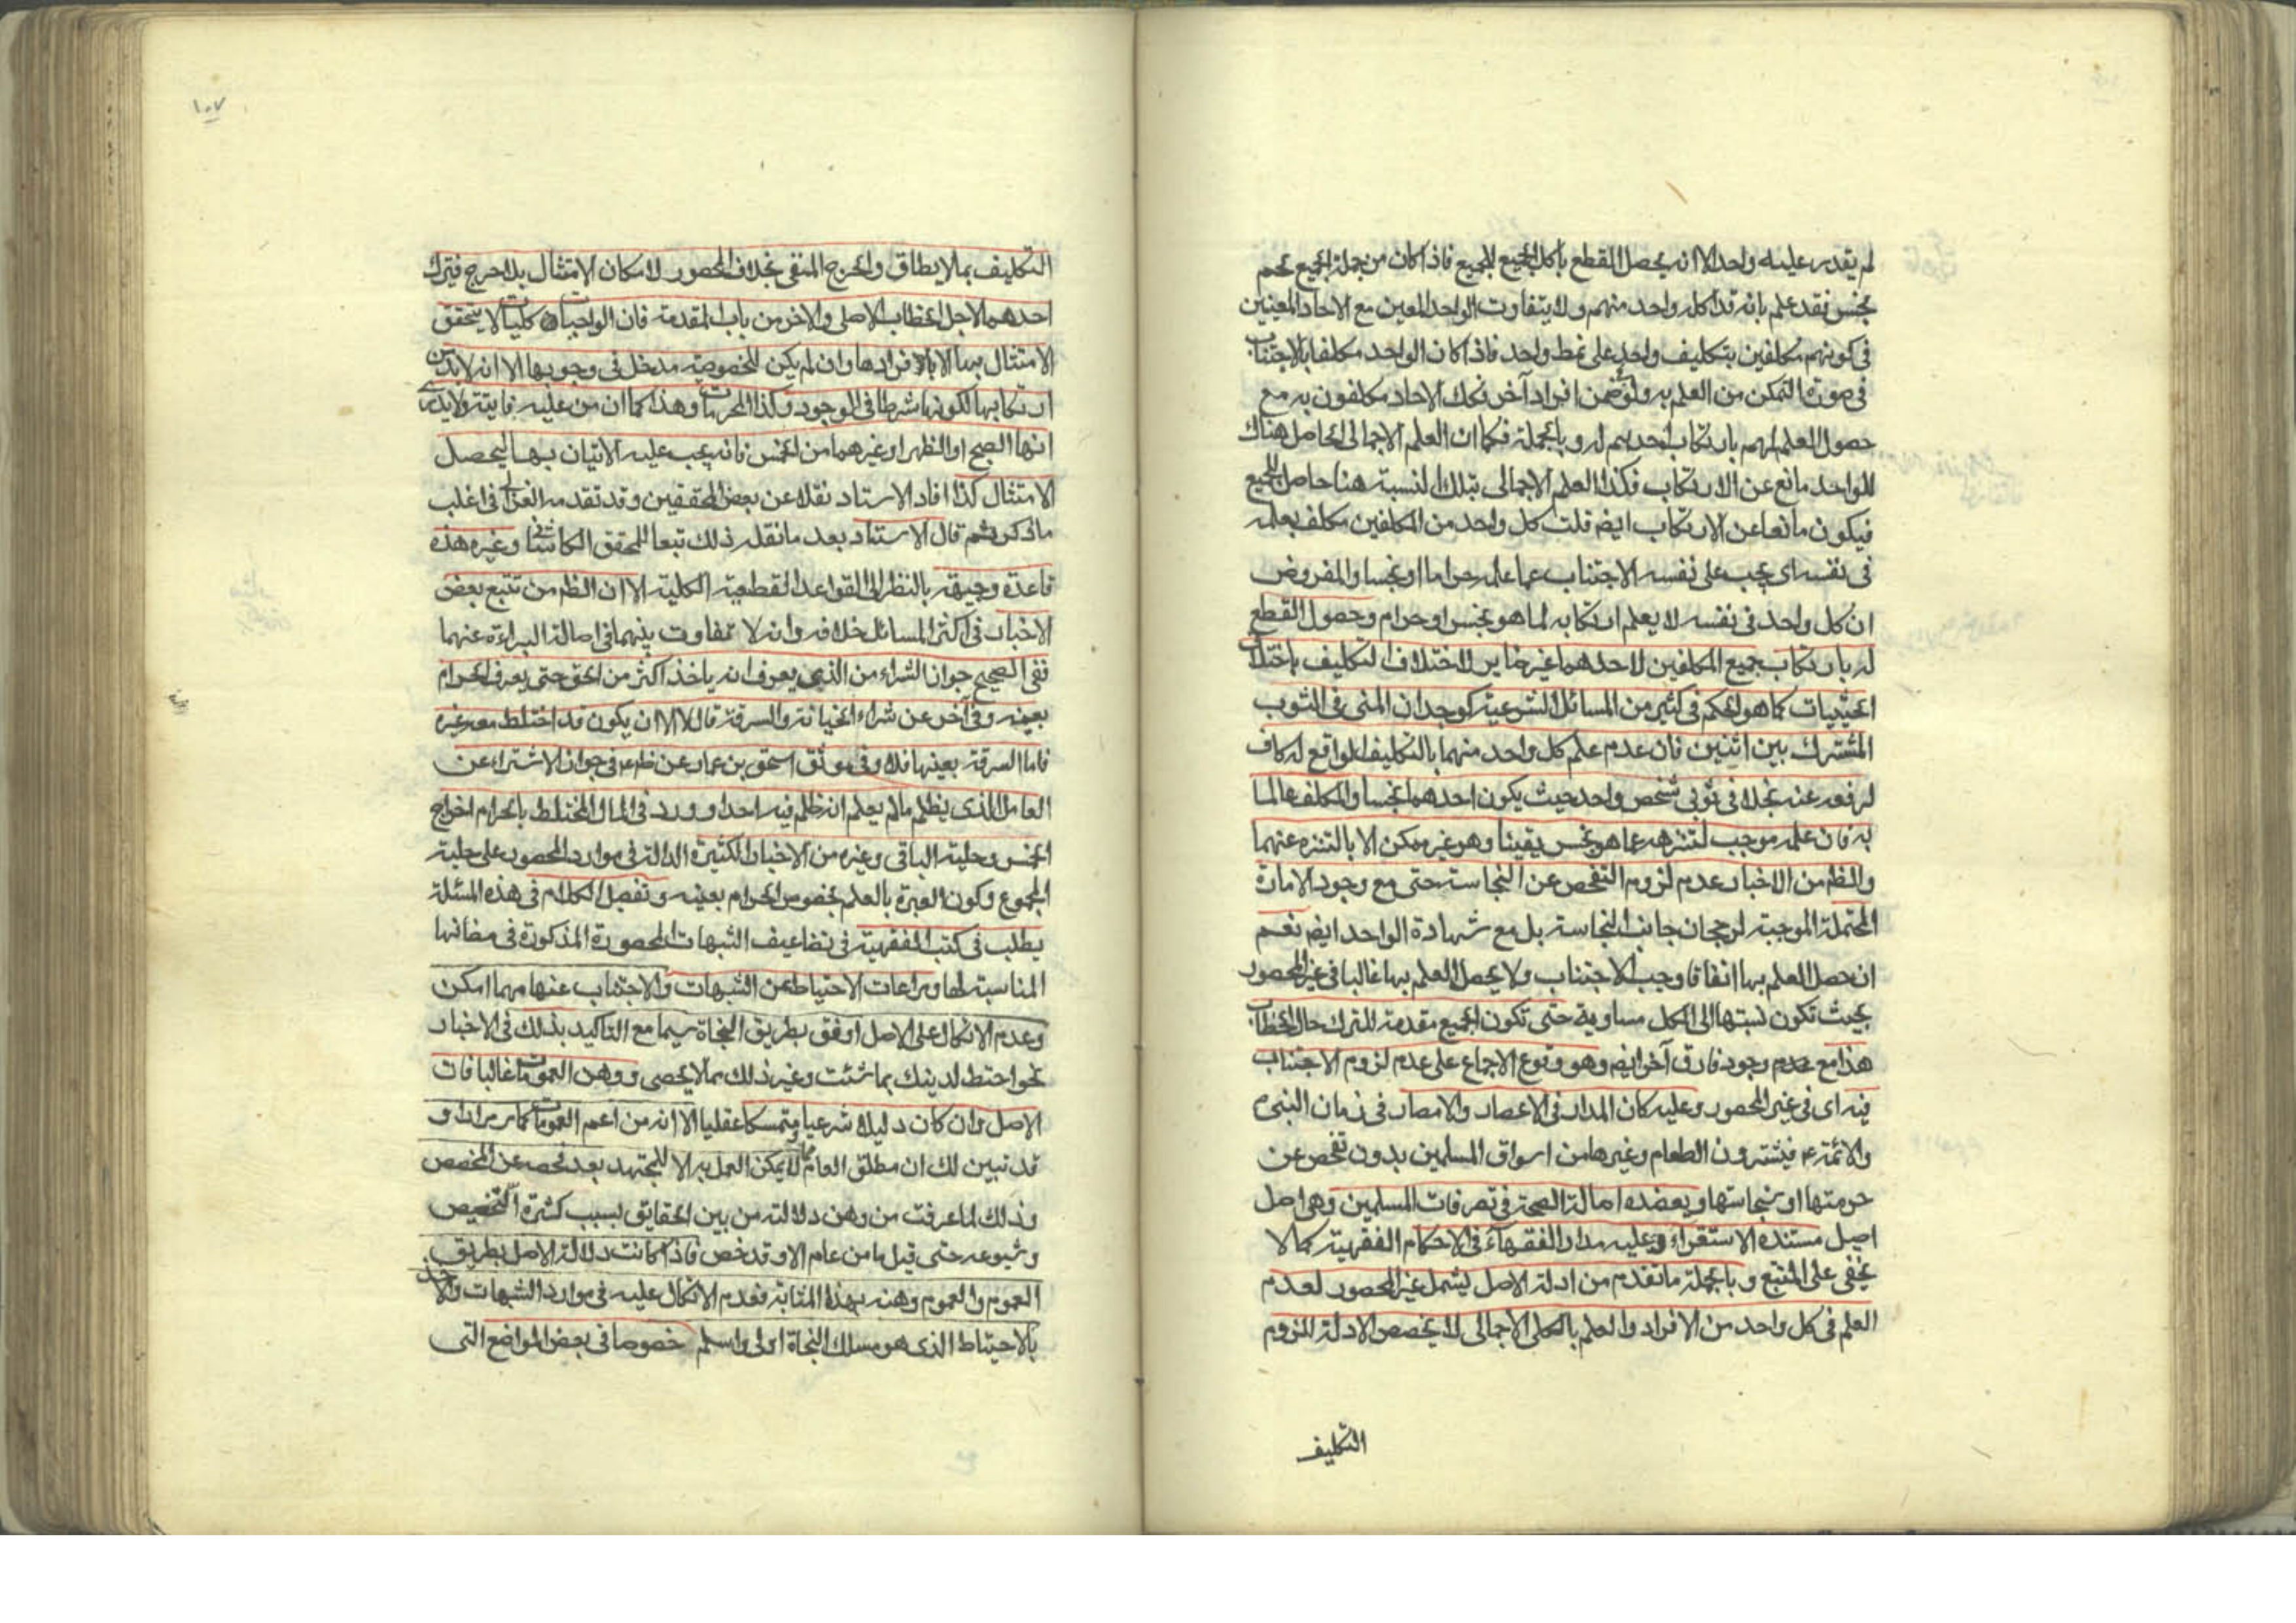 لم يقدر عليه واحد الا ان يحصل القطع باكل الجميع للجميع فاذا كان من جملة الجميع لحم
نجس فقد علم بانه قد اكله واحد منهم ولا يتفاوت الواحد المعين مع الاحاد المعينين
فى كونهم مكلفين بتكليف واحد على نمط واحد فاذا كان الواحد مكلفا بالاجتناب
فى صورة التمكن من العلم به ولو فى ضمن افراد آخر فكك الاحاد مكلفون به مع
حصول العلم لهم بارتكاب احدهم له وبالجملة فكما ان العلم الاجمالى الحاصل هناك
للواحد مانع عن الارتكاب فكذا العلم الاجمالى بتلك النسبة هنا حاصل للجميع
فيكون مانعا عن الارتكاب ايضا قلت كل واحد من المكلفين مكلف بعلمه
فى نفسه اى يجب على نفسه الاجتناب عما علمه حراما او نجسا والمفروض
ان كل واحد فى نفسه لا يعلم ارتكابه لما هو نجس او حرام وحصول القطع
له بارتكاب جميع المكلفين لاحدهما غير ضاير لاختلاف التكليف باختلاف
الحيثيات كما هو الحكم فى كثير من المسائل الشرعية كوجدان المنى فى الثوب
المشترك بين اثنين فان عدم علم كل واحد منهما بالتكليف الواقع له كاف
لرفعه عنه بخلافه فى ثوبى شخص واحد حيث يكون احدهما نجسا والمكلف عالما
به فان علمه موجب لتنزهه عما هو نجس يقينا وهو غير ممكن الا بالتنزه عنهما
والظم من الاخبار عدم لزوم التفحص عن النجاسة حتى مع وجود الامارة
المحتملة الموجبة لرجحان جانب النجاسة بل مع شهادة الواحد ايضا نعم
ان حصل العلم بها اتفاقا وجب الاجتناب ولا يحصل العلم بها غالبا فى غير المحصور
بحيث تكون نسبتها الى الكل مساوية حتى تكون الجميع مقدمة للترك حال الخطاب
هذا مع عدم وجود فارق آخر ايضا وهو وقوع الاجماع على عدم لزوم الاجتناب
فيه اى فى غير المحصور وعليه كان المدار فى الاعصار والامصار فى زمان النبى
والائمة ع فيشترون الطعام وغيرها من اسواق المسلمين بدون تفحص عن
حرمتها او نجاستها ويعضده اصالة الصحة فى تصرفات المسلمين وهى اصل
اصيل مستنده الاستقراء وعليه مدار الفقهاء فى الاحكام الفقهية كما لا
يخفى على المتتبع وبالجملة ما تقدم من ادلة الاصل يشمل غير المحصور لعدم
العلم فى كل واحد من الافراد والعلم بالكلى الاجمالى لا يخصص الادلة للزوم
التكليف
١٠٧
التكليف بما لا يطاق والحرج المنفى بخلاف المحصور لامكان الامتثال بلا حرج فيترك
احدهما لاجل الخطاب الاصلى والاخر من باب المقدمة فان الواجبات كليات لا يتحقق
الامتثال بها الا بافرادها وان لم يكن للخصوصية مدخل فى وجوبها الا انه لا بد من
ارتكابها لكونها شرطا فى الوجود وكذا المحرمات وهذا كما ان من عليه فايتة ولا يدرى
انها الصبح او الظهر او غيرهما من الخمس فانه يجب عليه الاتيان بها ليحصل
الامتثال كذا افاد الاستاد نقلا عن بعض المحققين وقد تقدمه الغزالى فى اغلب
ما ذكر ثم قال الاستاد بعد ما نقل ذلك تبعا للمحقق الكاشانى وغيره هذه
قاعدة وجيهة بالنظر الى القواعد القطعية الكلية الا ان الظم من تتبع بعض
الاخبار فى اكثر المسائل خلافه وانه لا تفاوت بينهما فى اصالة البراءة عنهما
ففى الصحيح جواز الشراء من الذى يعرف انه ياخذ اكثر من الحق حتى يعرف الحرام
بعينه وفى آخر عن شراء الخيانة والسرقة قال لا الا ان يكون قد اختلط معه غيره
فاما السرقة بعينها فلا وفى موثق اسحق بن عمار عن ظلمه فى جواز الاشتراء عن
العامل الذى يظلم ما لم يعلم انه ظلم فيه احدا وورد فى المال المختلط بالحرام اخراج
الخمس وحلية الباقى وغيره من الاخبار الكثيرة الدالة فى موارد المحصور على حلية
المجموع وكون العبرة بالعلم بخصوص الحرام بعينه وتفصيل الكلام فى هذه المسئلة
يطلب فى كتب الفقهية فى تضاعيف الشبهات المحصورة المذكورة فى مظانها
المناسبة لها ومراعات الاحتياط عن الشبهات والاجتناب عنها مهما امكن
وعدم الاتكال على الاصل اوفق بطريق النجاة سيما مع التاكيد بذلك فى الاخبار
نحو احتط لدينك بما شئت وغير ذلك مما لا يحصى ووهن العمومات غالبا فان
الاصل وان كان دليلا شرعيا ومتمسكا عقليا الا انه من اعم العمومات كما مر مرارا و
قد تبين لك ان مطلق العام مما لا يمكن العمل به الا للمجتهد بعد فحصه عن المخصص
وذلك لما عرفت من وهن دلالته من بين الحقايق بسبب كثرة التخصيص
وشيوعه حتى قيل ما من عام الا وقد خص فاذا كانت دلالة الاصل بطريق
العموم والعموم وهنه بهذه المثابة فعدم الاتكال عليه فى موارد الشبهات والاخذ
بالاحتياط الذى هو مسلك النجاة اولى واسلم خصوصا فى بعض المواضع التى